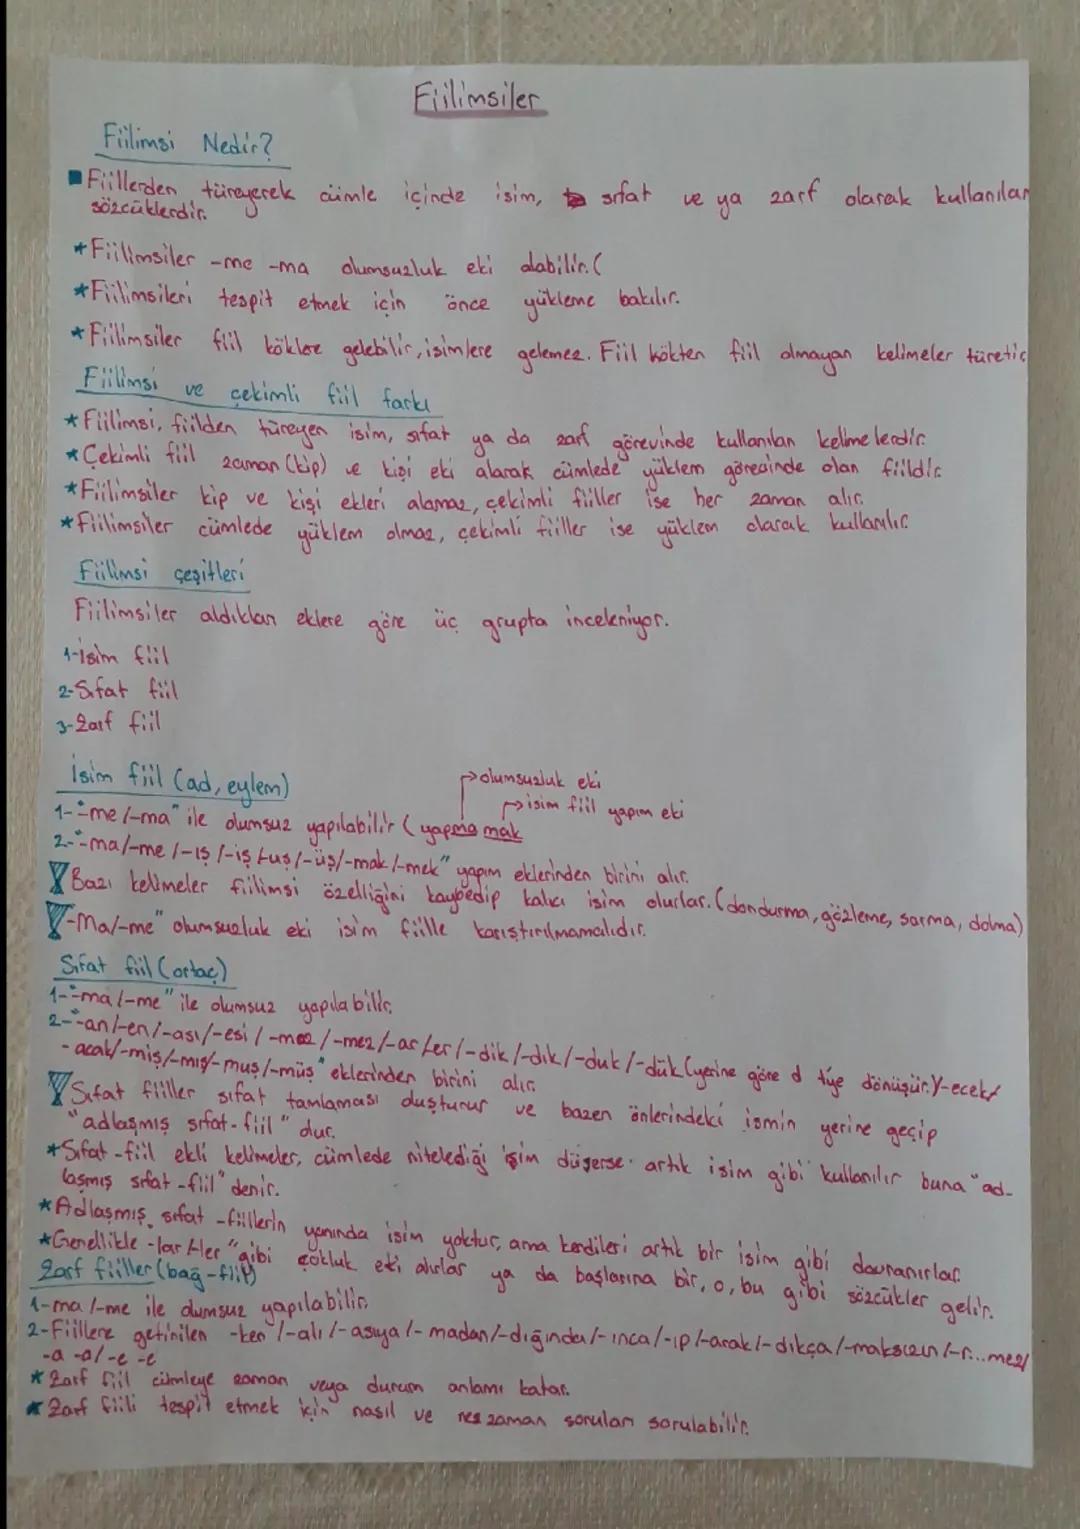 Fiilimsiler
Fiilimsi Nedir?
Fiillerden türeyerek cümle içinde isim, sıfat ve ya zarf olarak kullanılan
sözcüklerdir.
*Fiilimsiler -me -ma olumsuzluk eki alabilir.(
*Fiilimsileri tespit etmek için önce yükleme bakılır.
*Fiilimsiler fiil köklere gelebilir, isimlere gelemez. Fiil kökten fiil olmayan kelimeler türetir
Fiilimsi ve çekimli fiil farkı
*Fiilimsi, fiilden türeyen isim, sıfat ya da zarf görevinde kullanılan kelimelerdir.
*Çekimli fiil zaman (kip) ve kişi eki alarak cümlede yüklem görevinde olan fiildir.
*Fiilimsiler kip ve kişi ekleri alamaz, çekimli fiiller ise her zaman alır.
*Fiilimsiler cümlede yüklem olmaz, çekimli fiiller ise yüklem olarak kullanılır.
Fiilimsi çeşitleri
Fiilimsiler aldıkları eklere göre üç grupta inceleniyor.
1-İsim fiil
2-Sıfat fiil
3-Zarf fiil
İsim fiil (ad, eylem)
olumsuzluk eki
isim fiil yapım eki
1-"-me/-ma" ile olumsuz yapılabilir (yapma mak
2-"-ma/-me/-ış/-iş/-uş/-üş/-mak/-mek" yapım eklerinden birini alır.
Bazı kelimeler fiilimsi özelliğini kaybedip kalıcı isim olurlar. (dondurma, gözleme, sarma, dolma)
-Ma/-me" olumsuzluk eki isim fiille karıştırılmamalıdır.
Sıfat fiil (ortaç)
1-"-ma/-me" ile olumsuz yapılabilir.
2-"-an/-en/-ası/-esi/-maz/-mez/-ar/-er/-dik/-dık/-duk/-dük (yerine göre d t'ye dönüşür.)/-ecek/
-acak/-miş/-mış/-muş/-müş" eklerinden birini alır.
Sıfat fiiller sıfat tamlaması oluşturur ve bazen önlerindeki ismin yerine geçip
"adlaşmış sıfat-fiil" olur.
*Sıfat-fiil ekli kelimeler, cümlede nitelediği isim düşerse artık isim gibi kullanılır buna "ad-
laşmış sıfat-fiil" denir.
*Adlaşmış sıfat-fiillerin yanında isim yoktur, ama kendileri artık bir isim gibi davranırlar.
*Genellikle -lar/-ler "gibi çokluk eki alırlar ya da başlarına bir, o, bu gibi sözcükler gelir.
Zarf fiiller (bağ-fiil)
1-ma/-me ile olumsuz yapılabilir.
2-Fiillere getirilen -ken/-alı/-asıya/-madan/-dığında/-ınca/-ıp/-arak/-dıkça/-maksızın/-r...mez/
-a -a/-e -e
*Zarf fiil cümleye zaman veya durum anlamı katar.
*Zarf fiili tespit etmek için nasıl ve ne zaman soruları sorulabilir.